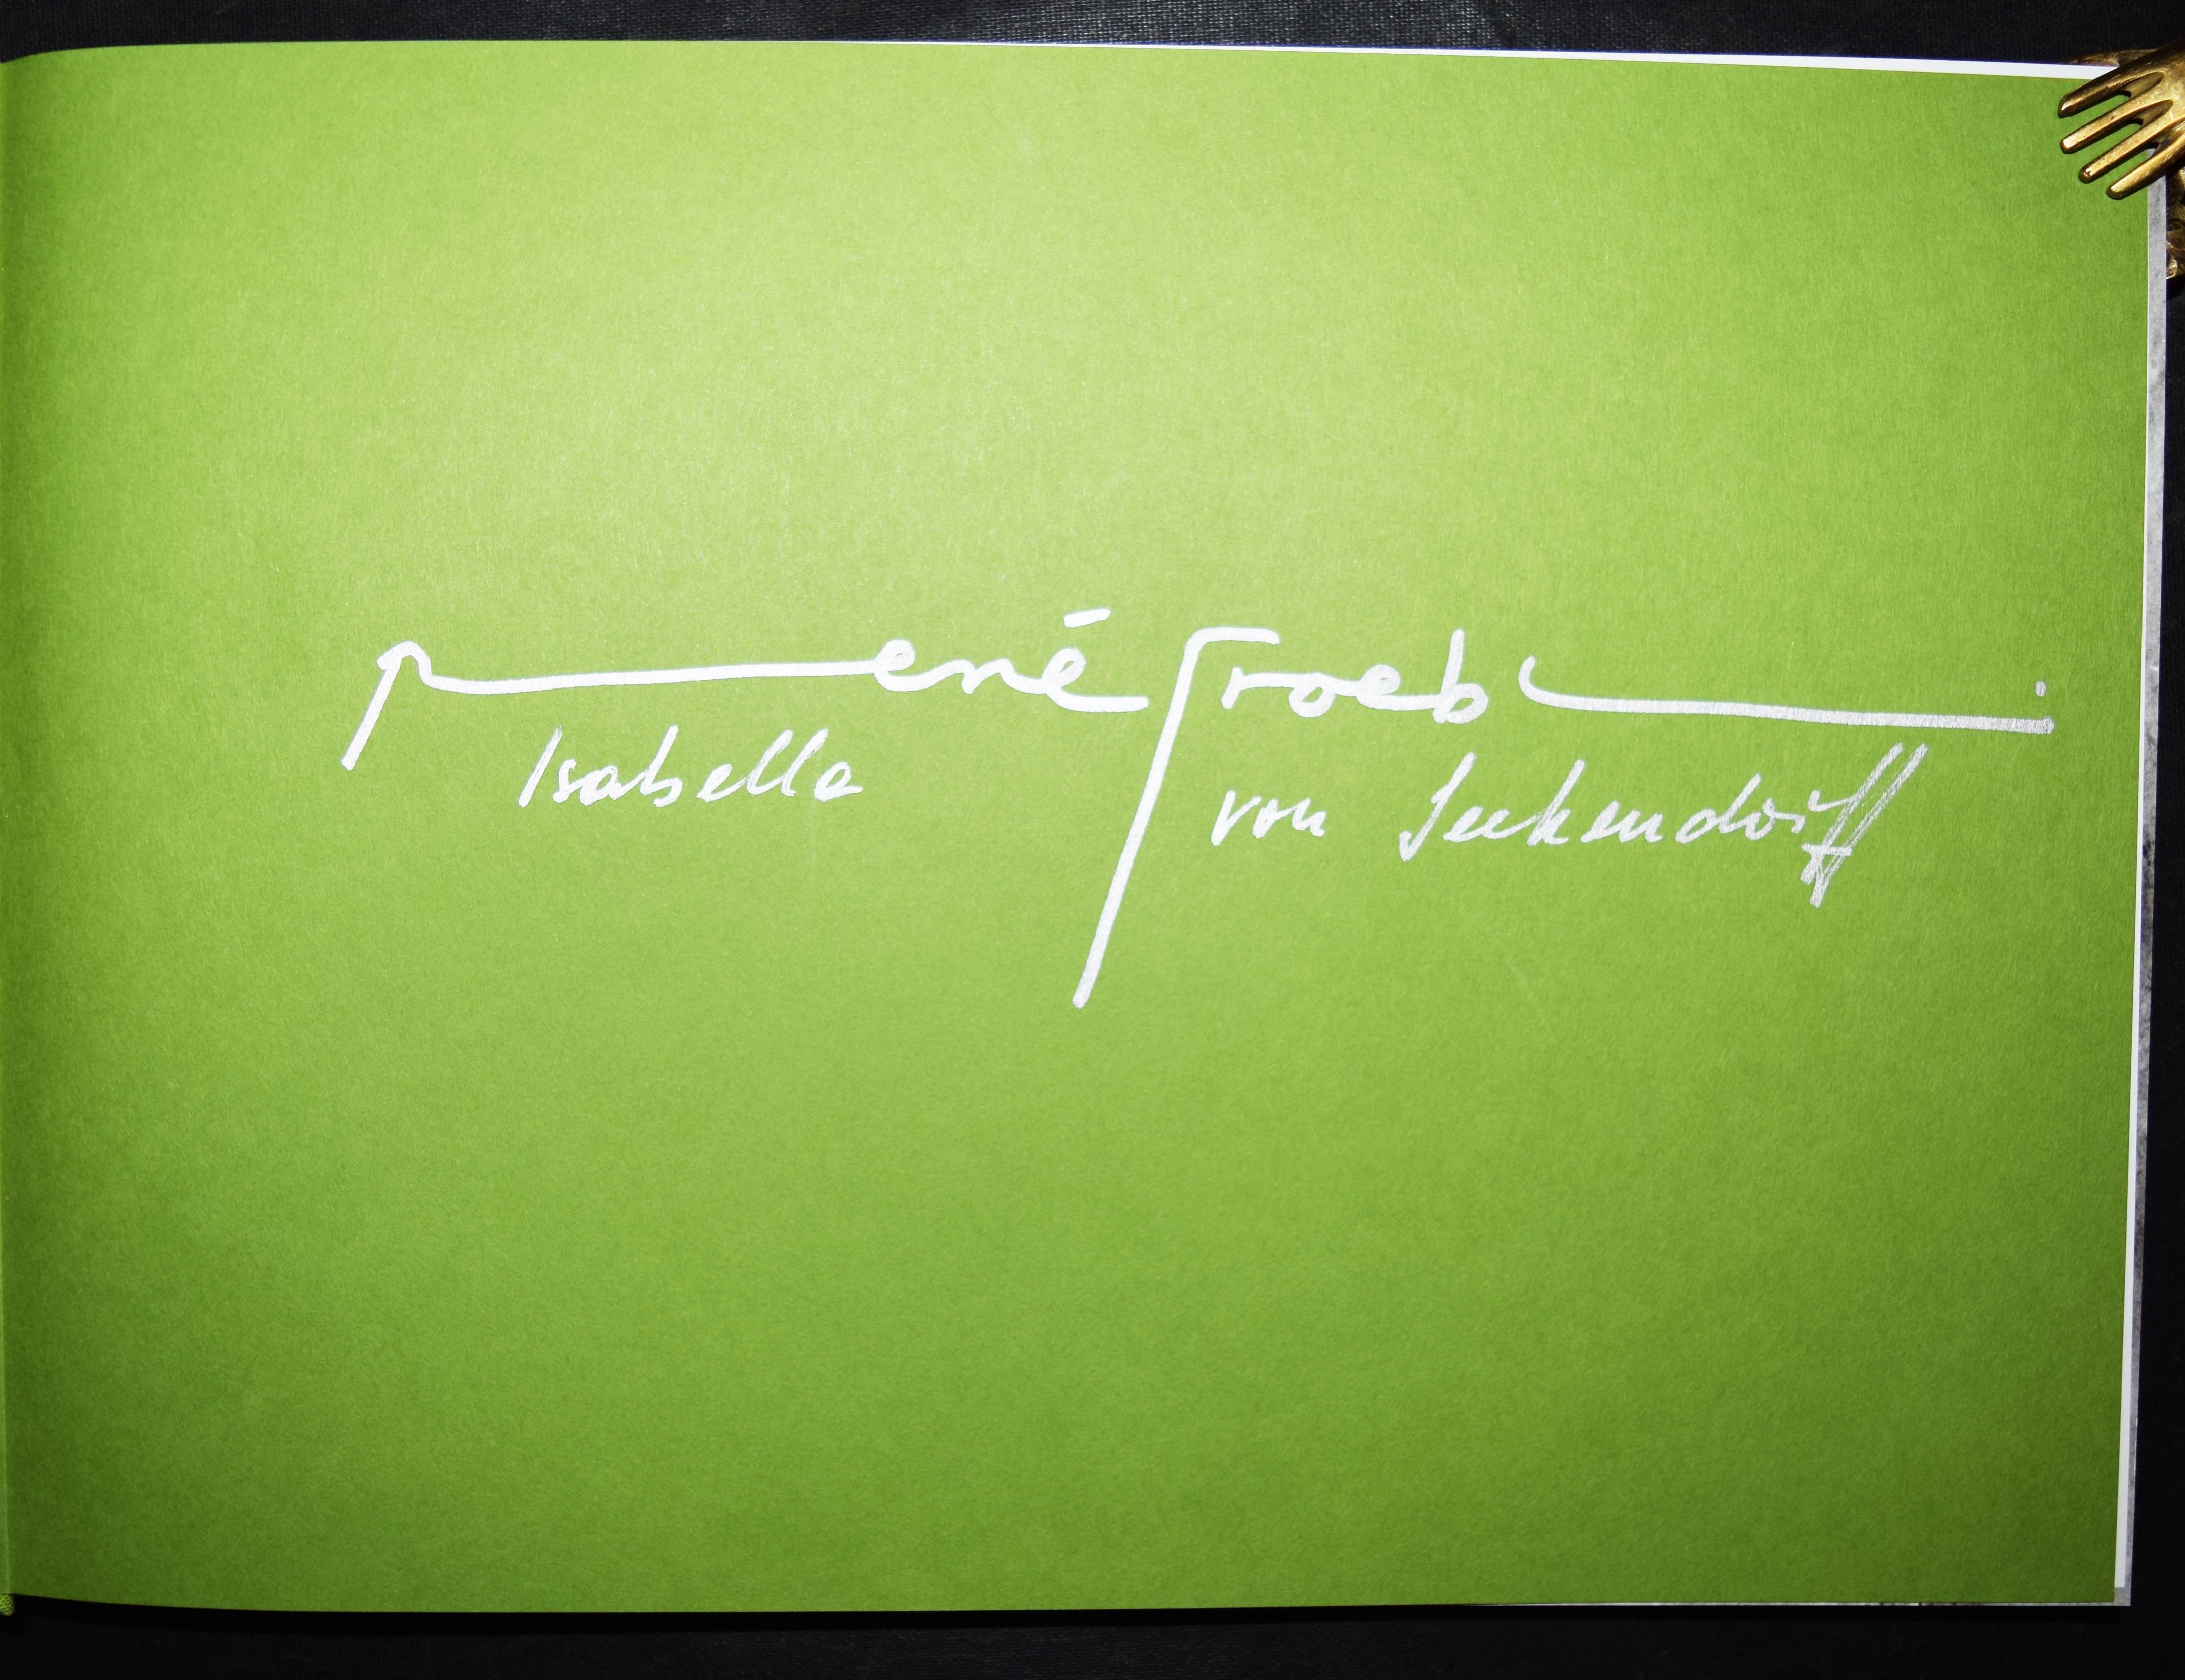 René Groebli
Isabella von Seckendorff